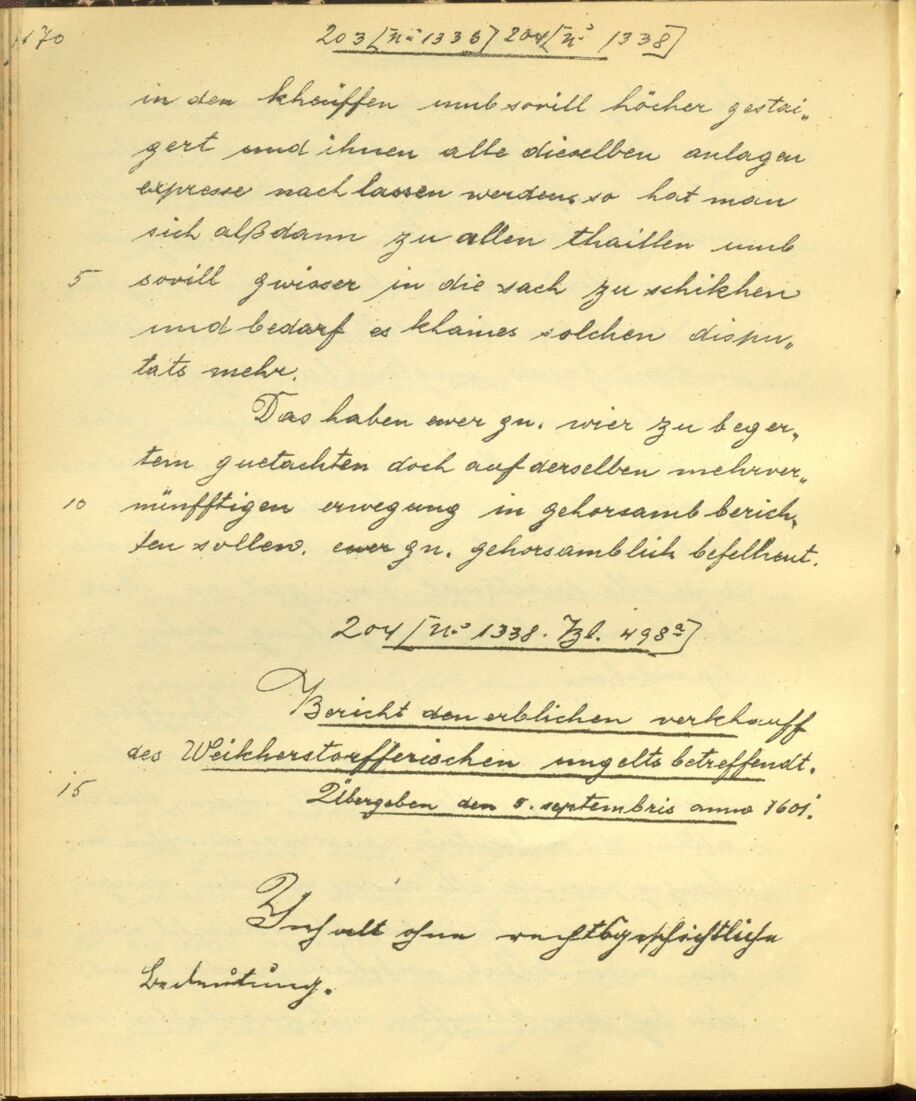 170
203 [Nro 1336] 204 [No 1338]
in den kheüffen umb sovill höcher gestai„
gert und ihnen alle dieselben anlagen
expresse nachlassen werden, so hat man
sich alßdann zu allen thaillen umb
5 sovill gwisser in die sach zu schikhen
und bedarf es khaines solchen dispu„
tats mehr.
Das haben ewer gn. wier zu beger„
tem guetachten doch auf derselben mehrver„
10 nünfftigen erwegung in gehorsamb berich„
ten sollen. ewer gn. gehorsamblich befelhent.
204 [No 1338. Bl. 498a]
Bericht den erblichen verkhauff
des Weikherstorfferischen ungelts betreffendt.
15 Übergeben den 5. septembris anno 1601.
Inhalt ohne rechtsgeschichtliche
Bedeutung.